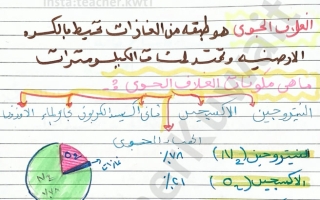 insta:teacher.kwt1
الغلاف الجوي هو طبقه من الغازات تحيط بالكره
الارضيه وتمتد لمئات الكيلومترات
ما هي مكونات الغلاف الجوي ؟
النيتروجين الاكسجين ثاني اكسيد الكربون بخار الماء الاوزون
الغلاف الجوي
النيتروجين (N₂) ٧٨٪
الاكسجين (O₂) ٢١٪
O₂
غازات
N₂
٧٨٪